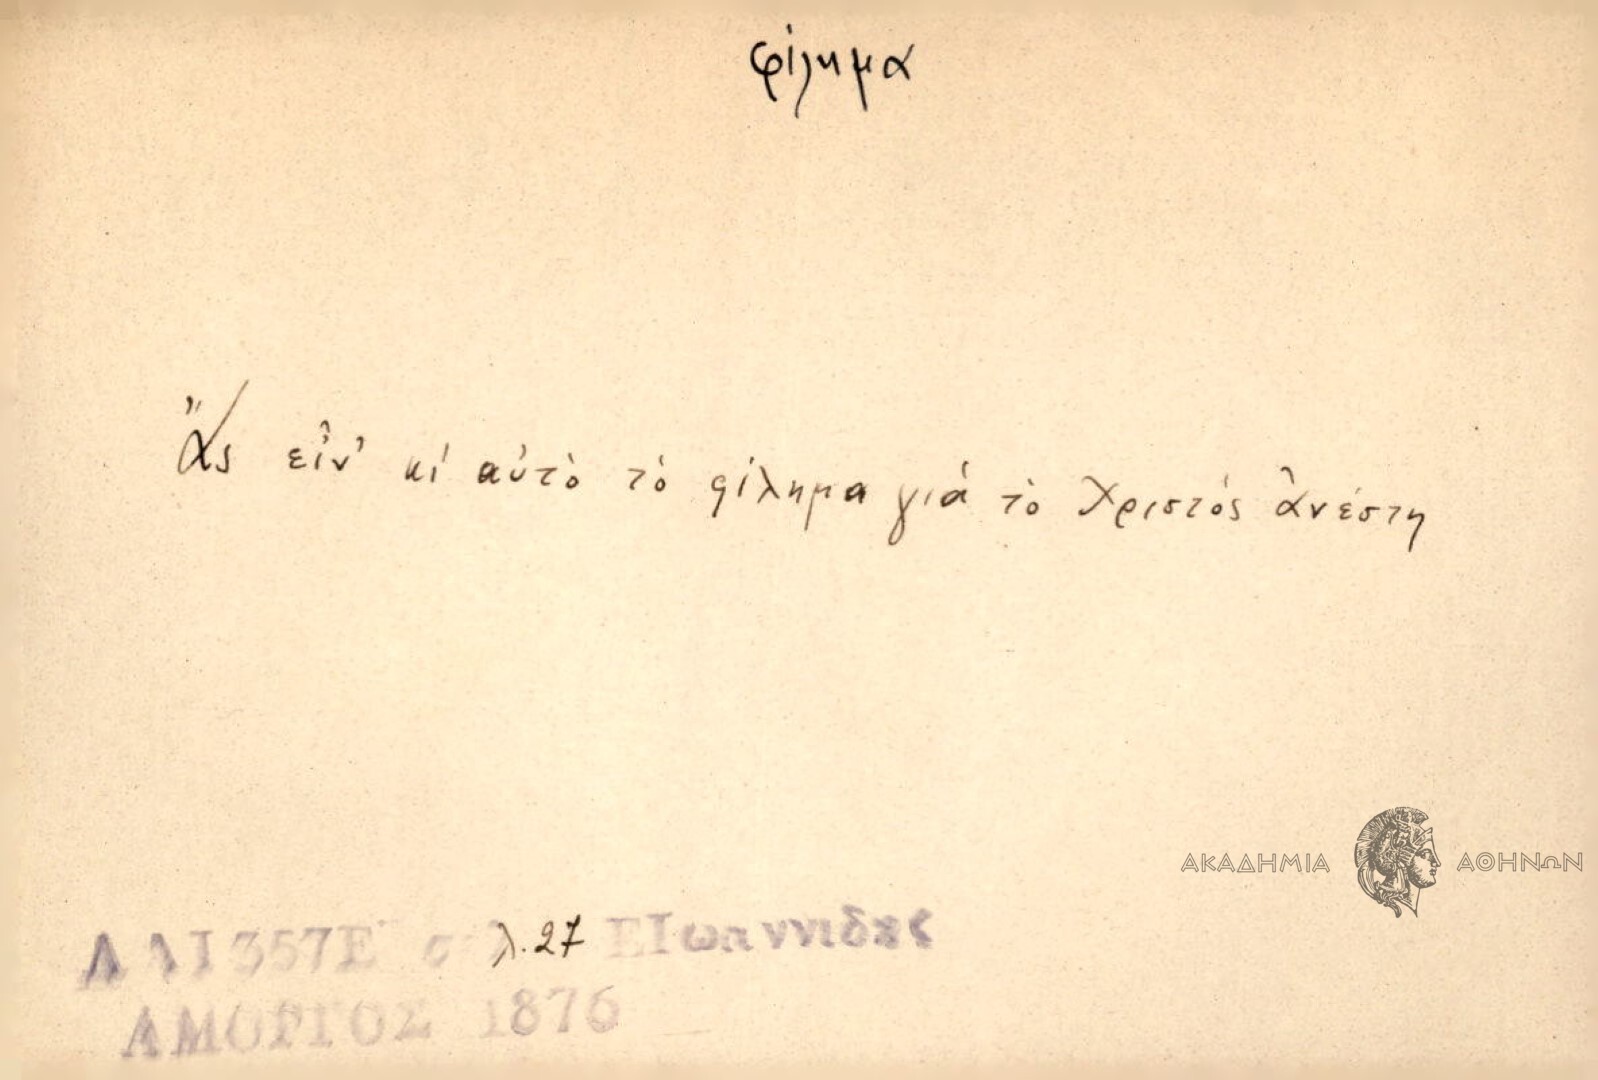 φίλημα
Ἄς εἶν' κι αὐτὸ τὸ φίλημα γιά τὸ Χριστός ἀνέστη
ΑΚΑΔΗΜΙΑ ΑΘΗΝΩΝ
1357Ε σελ. 27 ΕΙωαννιδης
ΑΜΟΡΓΟΣ 1876